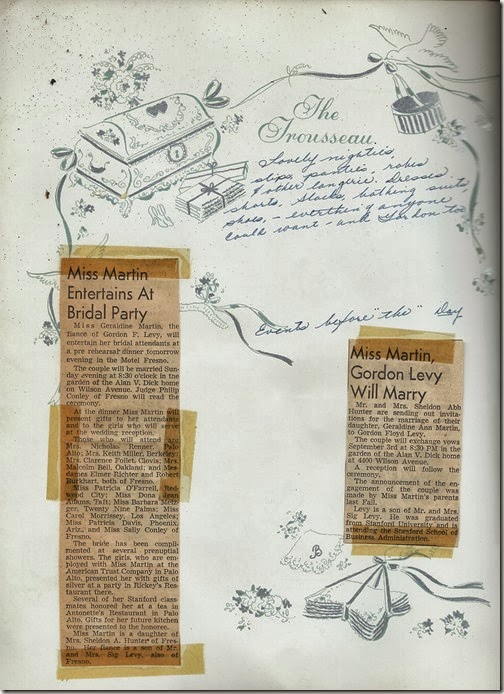 The
Trousseau
Lovely nighties,
slips, panties, robes
& other langerie. Dresses
shorts, slacks, bathing suits,
shoes, - everthing anyone
could want - and
Events before "the" Day
Miss Martin
Entertains At
Bridal Party
Miss Geraldine Martin, the
fiance of Gordon F. Levy, will
entertain her bridal attendants at
a pre rehearsal dinner tomorrow
evening in the Motel Fresno.
The couple will be married Sun-
day evening at 8:30 o'clock in the
garden of the Alan V. Dick home
on Wilson Avenue. Judge Philip
Conley of Fresno will read the
ceremony.
At the dinner Miss Martin will
present gifts to her attendants
and to the girls who will serve
at the wedding reception.
Those who will attend are
Mrs. Nicholas Renner, Palo
Alto; Mrs. Keith Miller, Berkeley;
Mrs. Clarence Follet, Clovis; Mrs.
Malcolm Bell, Oakland; and Mes-
dames Elmer Richter and Robert
Burkhart, both of Fresno.
Miss Patricia O'Farrell, Red-
wood City; Miss Dona
Adams, Taft; Miss Barbara Metz-
ger, Twenty Nine Palms; Miss
Carol Morrissey, Los Angeles;
Miss Patricia Davis, Phoenix,
Ariz., and Miss Sally Conley of
Fresno.
The bride has been compli-
mented at several prenuptial
showers. The girls, who are em-
ployed with Miss Martin at the
American Trust Company in Palo
Alto, presented her with gifts of
silver at a party in Rickey's Res-
taurant there.
Several of her Stanford class-
mates honored her at a tea in
Antonette's Restaurant in Palo
Alto. Gifts for her future kitchen
were presented to the honoree.
Miss Martin is a daughter of
Mrs. Sheldon A. Hunter of Fres-
no. Her fiance is a son of Mr.
and Mrs. Sig Levy, also of
Fresno.
Miss Martin,
Gordon Levy
Will Marry
Mr. and Mrs. Sheldon Abb
Hunter are sending out invita-
tions for the marriage of their
daughter, Geraldine Ann Martin,
to Gordon Floyd Levy.
The couple will exchange vows
September 3rd at 8:30 PM in the
garden of the Alan V. Dick home
at 4400 Wilson Avenue.
A reception will follow the
ceremony.
The announcement of the en-
gagement of the couple was
made by Miss Martin's parents
last Fall.
Levy is a son of Mr. and Mrs.
Sig Levy. He was graduated
from Stanford University and is
attending the Stanford School of
Business Administration.
B